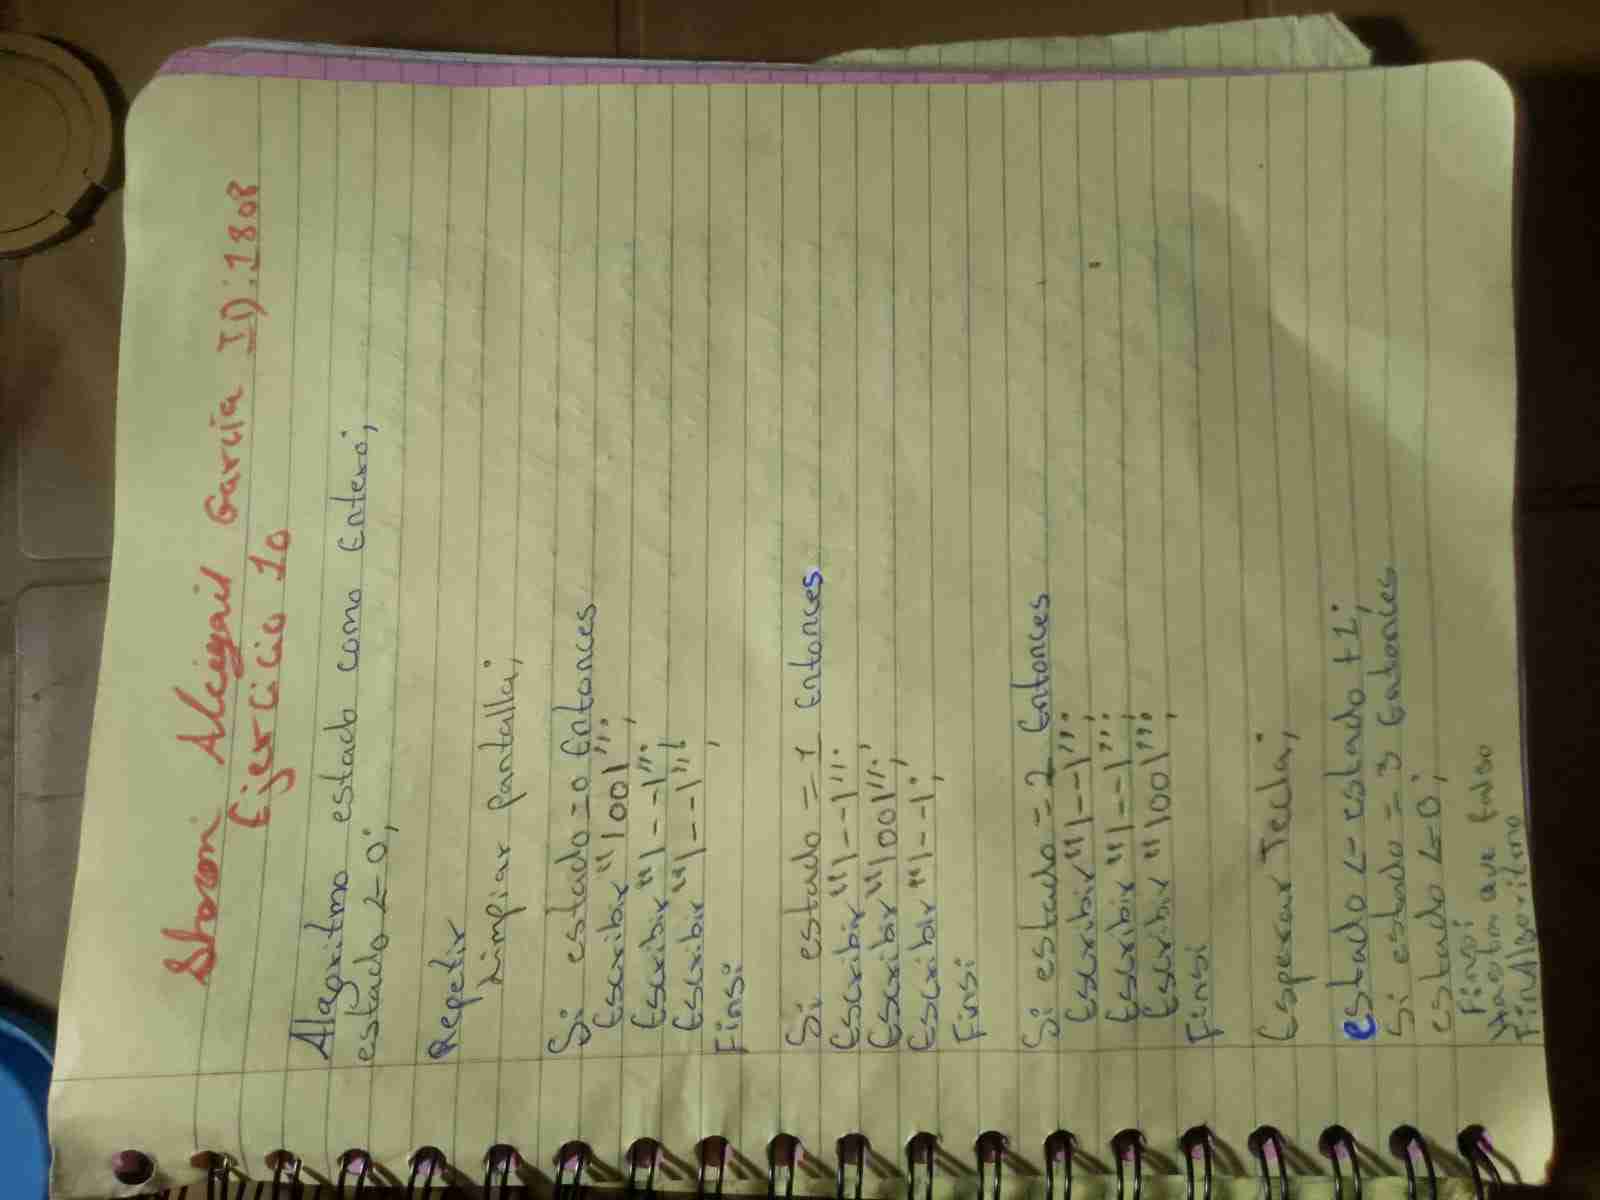 Sharon Abigail García ID:1808
Ejercicio 10
Algoritmo estado como Entero;
estado <- 0;
Repetir
Limpiar pantalla;
Si estado = 0 Entonces
Escribir "|00|";
Escribir "|--|";
Escribir "|--|";
Finsi
Si estado = 1 Entonces
Escribir "|--|";
Escribir "|00|";
Escribir "|--|;
Finsi
Si estado = 2 Entonces
Escribir "|--|";
Escribir "|--|";
Escribir "|00|";
Finsi
Esperar Tecla;
estado <- estado +1;
Si estado = 3 Entonces
estado <- 0;
Finsi
Hasta que Falso
FinAlgoritmo